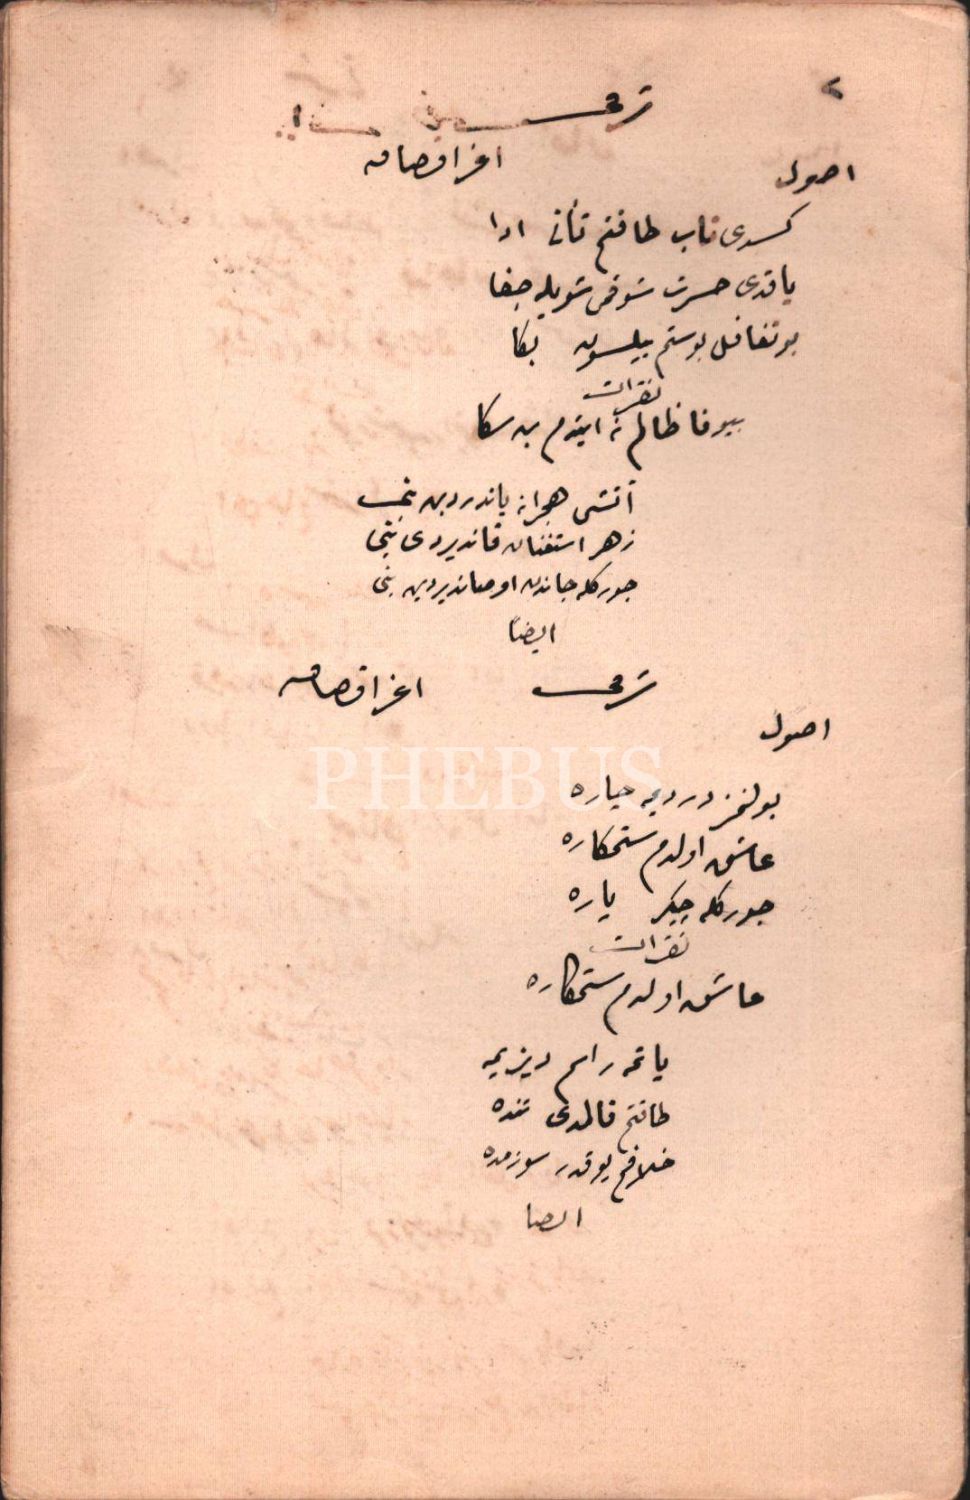 ٢
شرقی
اصول اغر اقصاق
کسدی تاب طاقتم تأنی ادا
یاقدی حسرت شوقی شویله جفا
بو تغافل بو ستم بیلسون بکا
نقرات
بیوفا ظالم نه ایتدم بن سکا
آتش هجرانه یاندردین بنی
زهر استغنان قاندیردی بنی
جورکله جاندن اوصاندیردین بنی
ایضا
شرقی اغر اقصاق
اصول
بولنمز دردیمه چاره
عاشق اولدم ستمکاره
جورکله جکر یاره
نقرات
عاشق اولدم ستمکاره
یاتمه راسم دیزیمه
طاقتم قالمدی تنده
خلافم یوقدر سوزمده
ایضا
PHEBUS